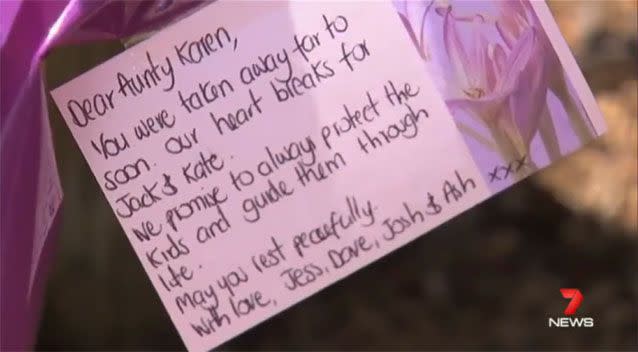 Dear Aunty Karen,
You were taken away far to
soon. Our heart breaks for
Jack & Kate.
We promise to always protect the
kids and guide them through
life.
May you rest peacefully.
With love, Jess, Dave, Josh & Ash xxx
7
NEWS